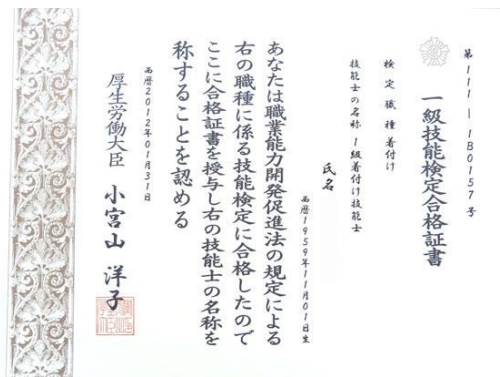 第111-1B0157号
一級技能検定合格証書
検定職種 着付け
技能士の名称 1級着付け技能士
氏名
西暦1959年11月01日生
あなたは職業能力開発促進法の規定による
右の職種に係る技能検定に合格したので
ここに合格証書を授与し右の技能士の名称を
称することを認める
西暦2012年01月31日
厚生労働大臣 小宮山 洋子